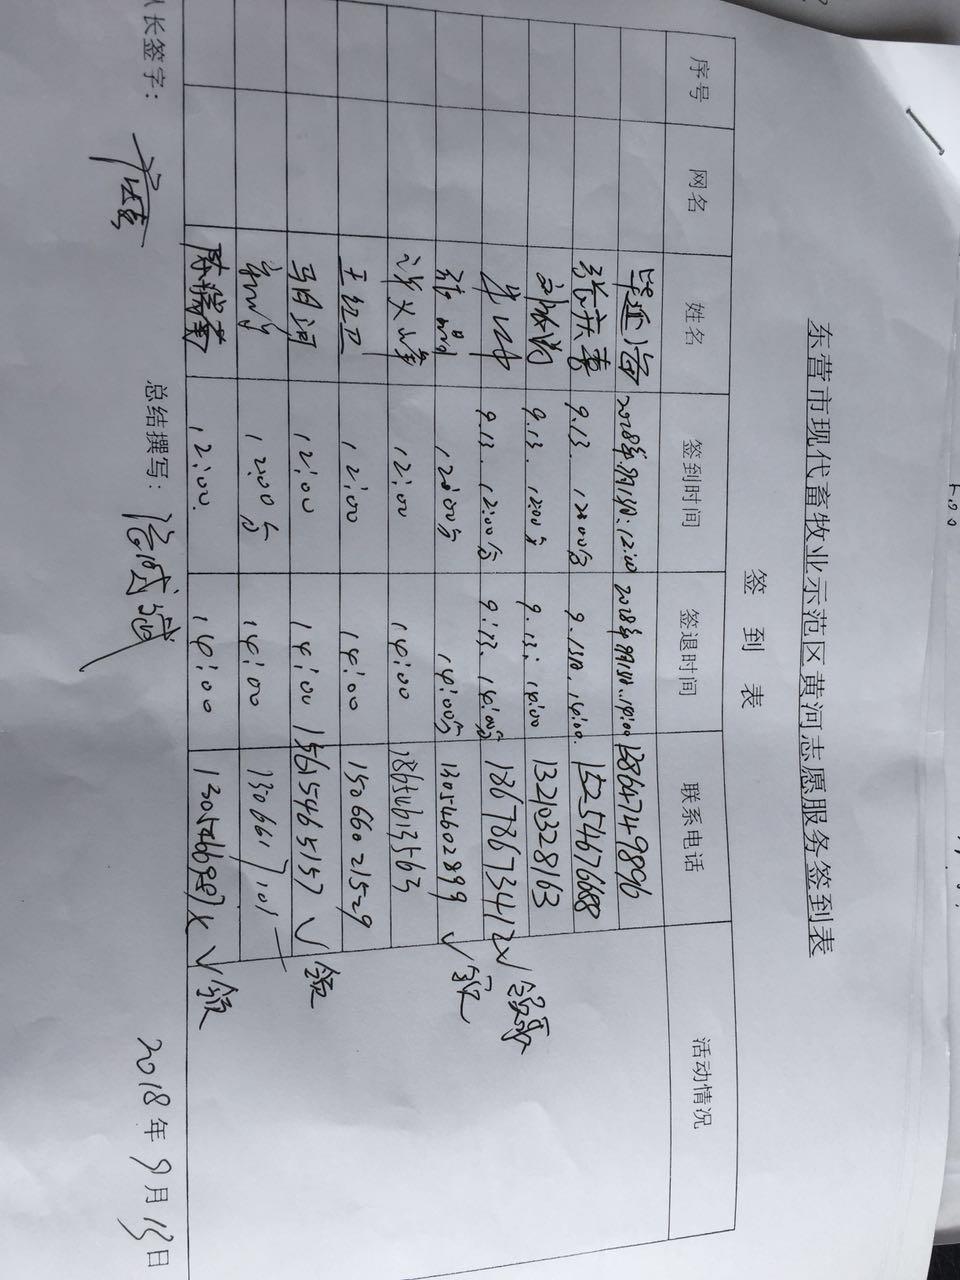 东营市现代畜牧业示范区黄河志愿服务签到表
签 到 表
序号 网名 姓名 签到时间 签退时间 联系电话 活动情况
毕延海 2018年9月13日:12:00 2018年9月13日:14:00 13864749896
张庆春 9.13. 12:00分 9.13日.14:00. 15254676688
9.13. 12:00分 9.13:14:00 13210328163
9.13.12:00分 9.13.14:00分 18678673412 √
张娟 12:00分 14:00分 13054602899 √ 领
许火峰 12:00 14:00 18654613563
王红卫 12:00 14:00 15066021529
马月河 12:00 14:00 15615465157 √ 领
12:00分 14:00 13066117101
陈瑞菊 12:00. 14:00 √ 领
队长签字: 总结撰写: 2018年9月13日